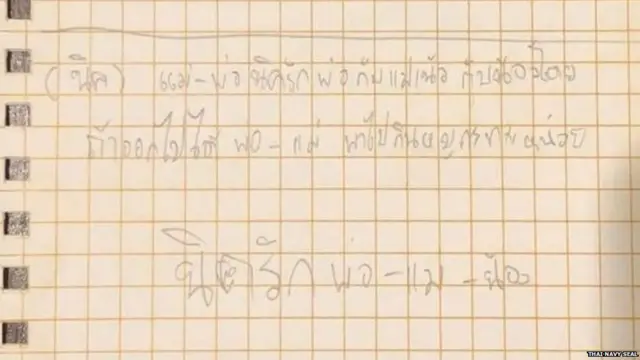 (นิค) แม่-พ่อ นิครัก พ่อกับแม่ กับน้อง
ถ้าออกไปได้ พ่อ-แม่ พาไปกินหมูกระทะหน่อย
นิครัก พ่อ-แม่-น้อง
THAI NAVY SEAL